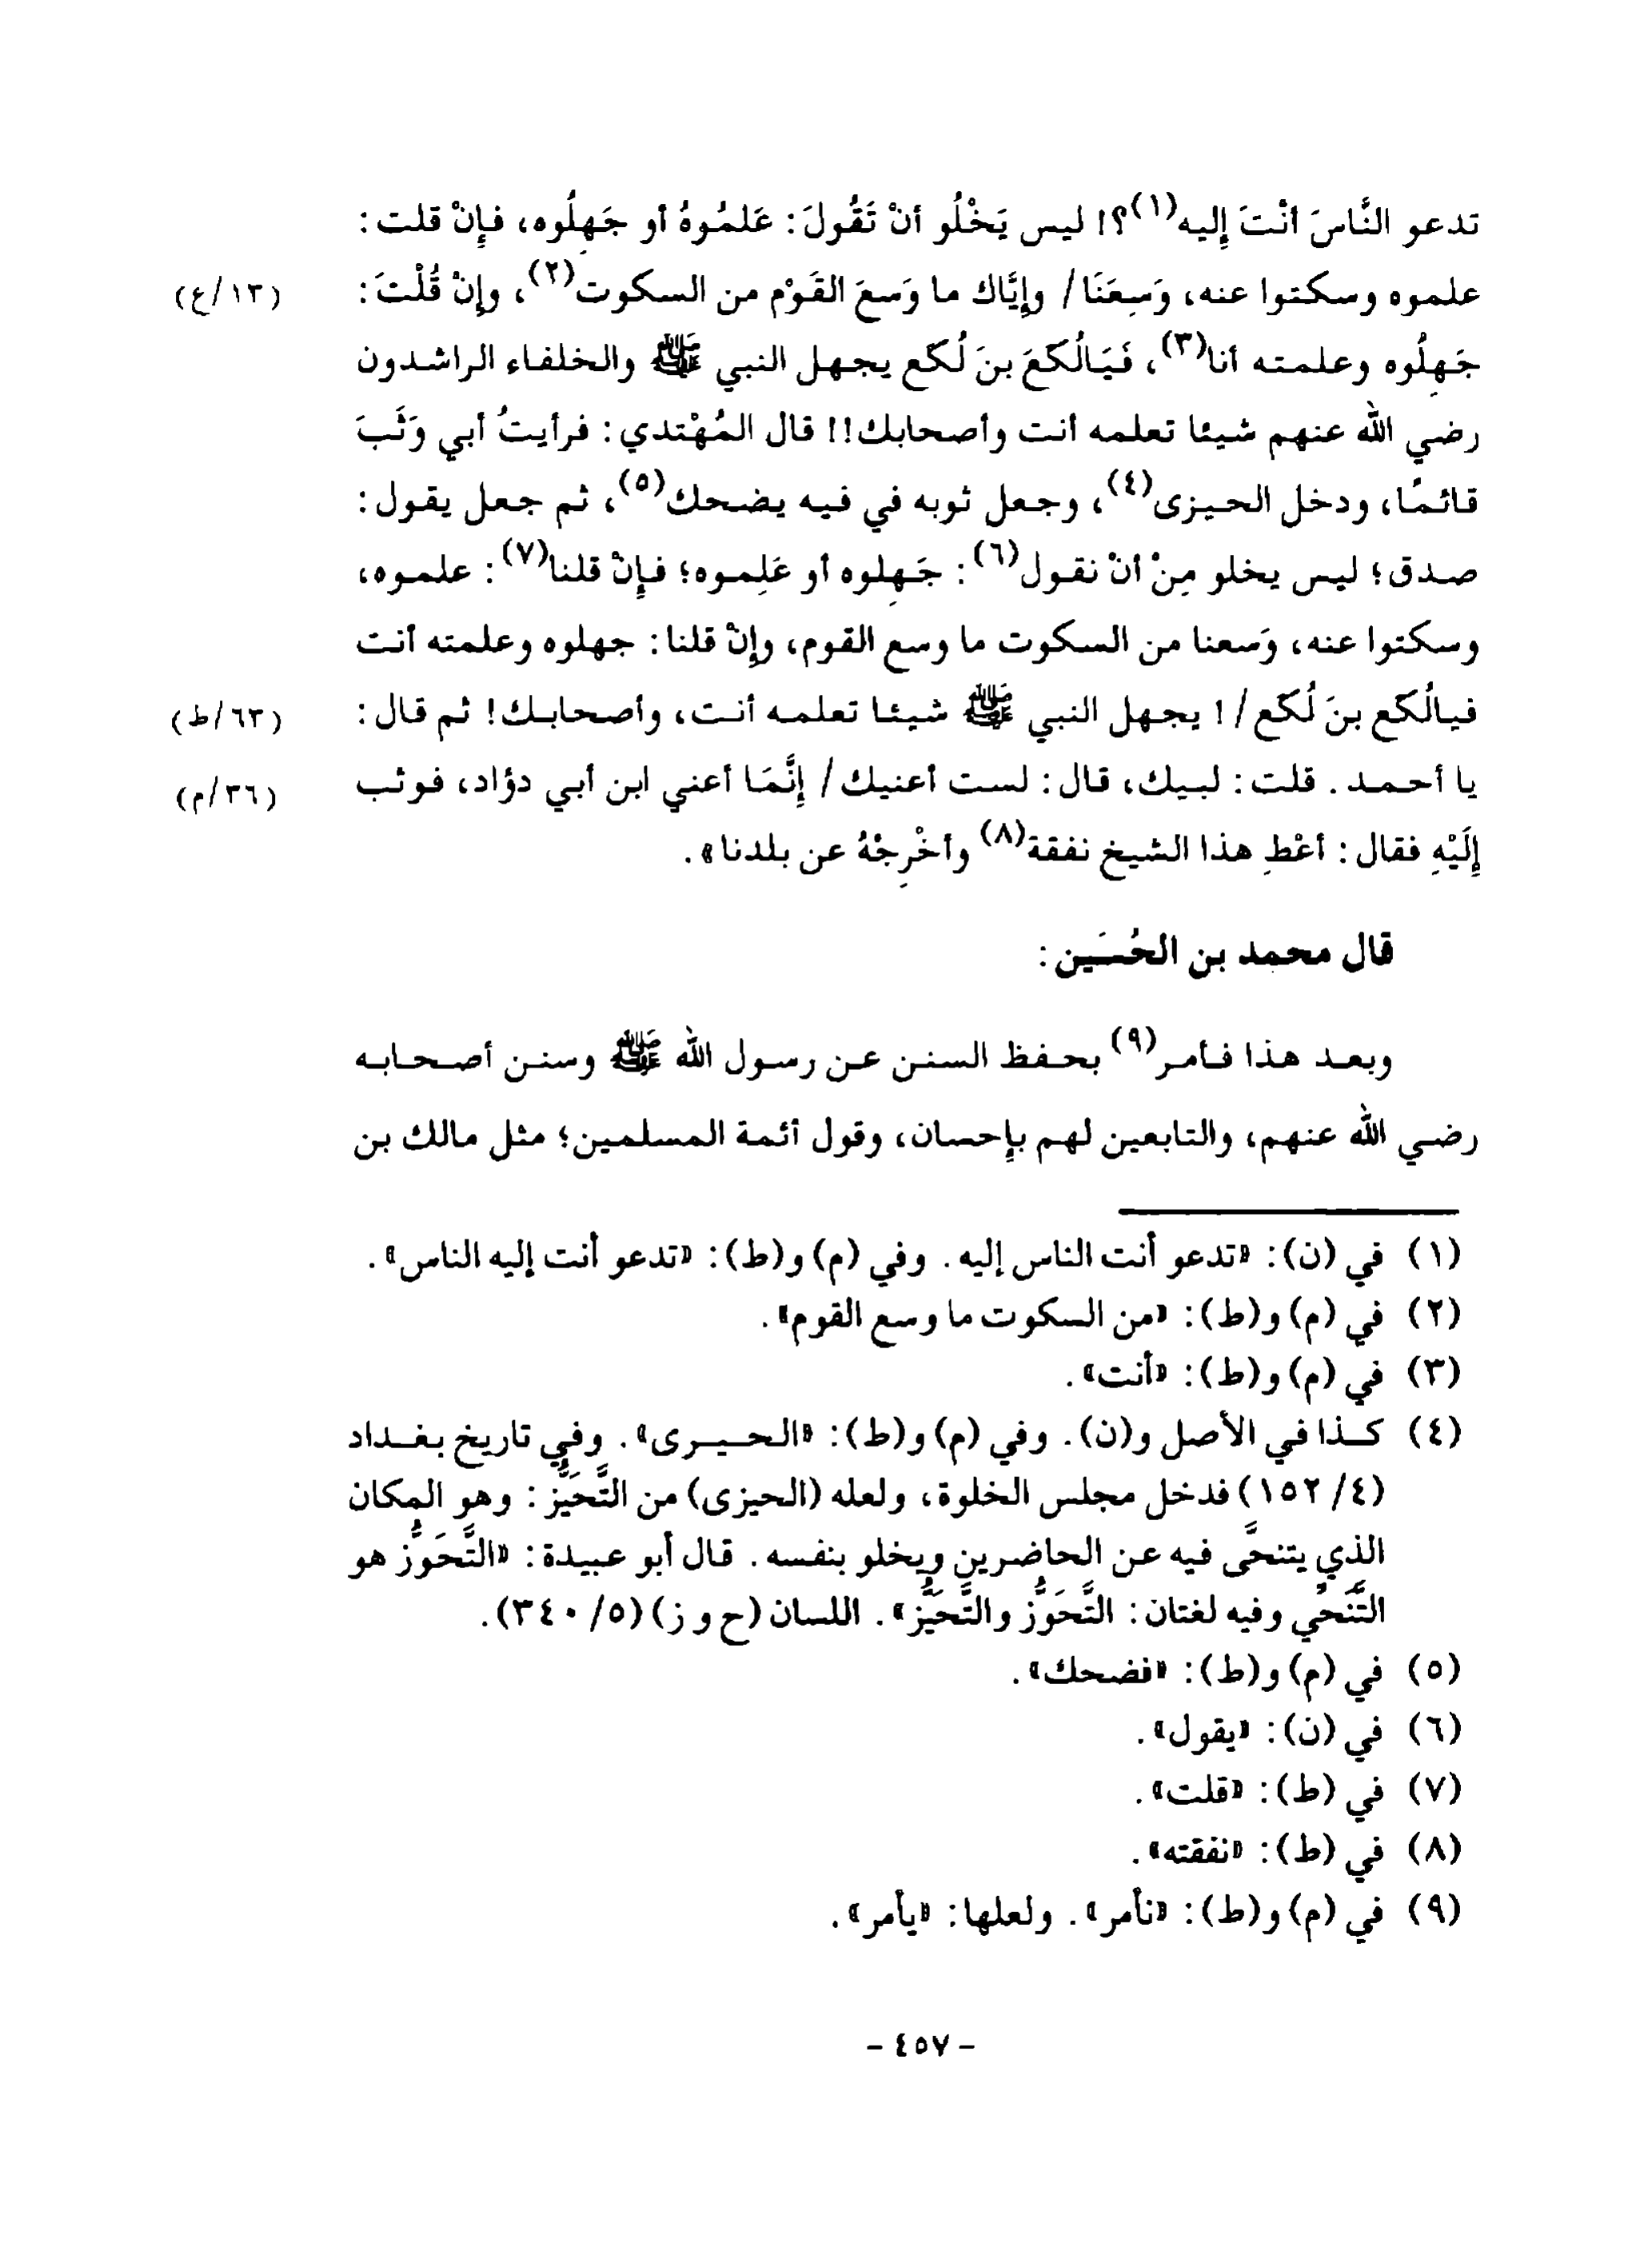 تدعو النَّاسَ أنْتَ إليه(١)؟! ليس يَخْلُو أنْ تَقُولَ: عَلمُوهُ أو جَهِلُوه، فإنْ قلت:
علموه وسكتوا عنه، وَسِعَنَا/ وإيَّاك ما وَسعَ القَوْم من السكوت(٢)، وإنْ قُلْتَ: (١٣/ع)
جَهِلُوه وعلمته أنا(٣)، فَيَالُكَعَ بنَ لُكَع يجهل النبي ﷺ والخلفاء الراشدون
رضي الله عنهم شيئا تعلمه أنت وأصحابك!! قال المُهْتدي: فرأيتُ أبي وَثَبَ
قائمًا، ودخل الحيزى(٤)، وجعل ثوبه في فيه يضحك(٥)، ثم جعل يقول:
صدق؛ ليس يخلو مِنْ أنْ نقول(٦): جَهِلوه أو عَلِموه؛ فإنْ قلنا(٧): علموه،
وسكتوا عنه، وَسعنا من السكوت ما وسع القوم، وإنْ قلنا: جهلوه وعلمته أنت
فيالُكَع بنَ لُكَع/! يجهل النبي ﷺ شيئا تعلمه أنت، وأصحابك! ثم قال: (٦٣/ط)
يا أحمد. قلت: لبيك، قال: لست أعنيك/ إنَّمَا أعني ابن أبي دؤاد، فوثب (٣٦/م)
إلَيْهِ فقال: أعْطِ هذا الشيخ نفقة(٨) وأخْرِجْهُ عن بلدنا».
قال محمد بن الحُسَين:
وبعد هذا فأمر(٩) بحفظ السنن عن رسول الله ﷺ وسنن أصحابه
رضي الله عنهم، والتابعين لهم بإحسان، وقول أئمة المسلمين؛ مثل مالك بن
(١) في (ن): «تدعو أنت الناس إليه. وفي (م) و(ط): «تدعو أنت إليه الناس».
(٢) في (م) و(ط): «من السكوت ما وسع القوم».
(٣) في (م) و(ط): «أنت».
(٤) كذا في الأصل و(ن). وفي (م) و(ط): «الحيرى». وفي تاريخ بغداد
(٤/ ١٥٢) فدخل مجلس الخلوة، ولعله (الحيزى) من التَّحَيُّز: وهو المكان
الذي يتنحَّى فيه عن الحاضرين ويخلو بنفسه. قال أبو عبيدة: «التَّحَوُّز هو
التَّنَحُّي وفيه لغتان: التَّحَوُّز والتَّحَيُّز». اللسان (ح و ز) (٥/ ٣٤٠).
(٥) في (م) و(ط): «فضحك».
(٦) في (ن): «يقول».
(٧) في (ط): «قلت».
(٨) في (ط): «نفقته».
(٩) في (م) و(ط): «نأمر». ولعلها: «يأمر».
- ٤٥٧ -